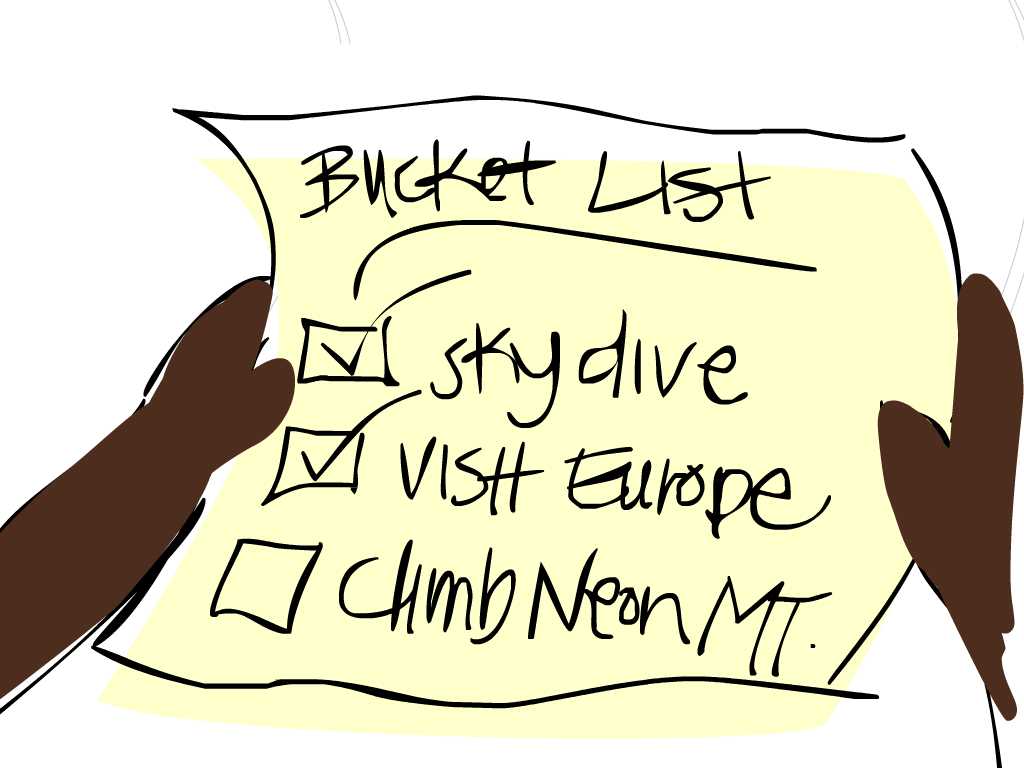 Bucket List
skydive
visit Europe
Climb Neon MT.